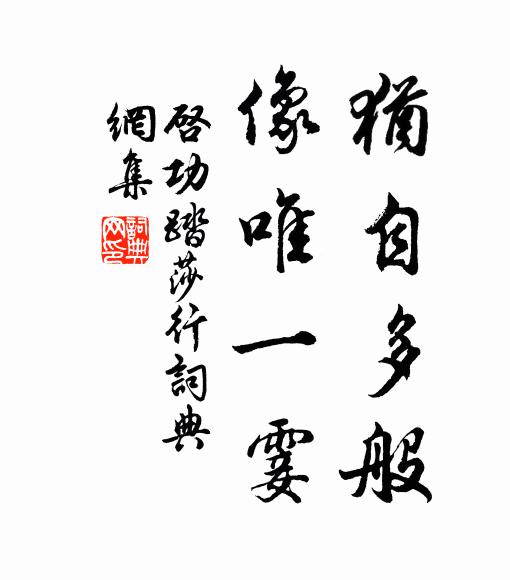 猶自多般
像唯一霎
啓功踏莎行詞典
網集
詞典
网印